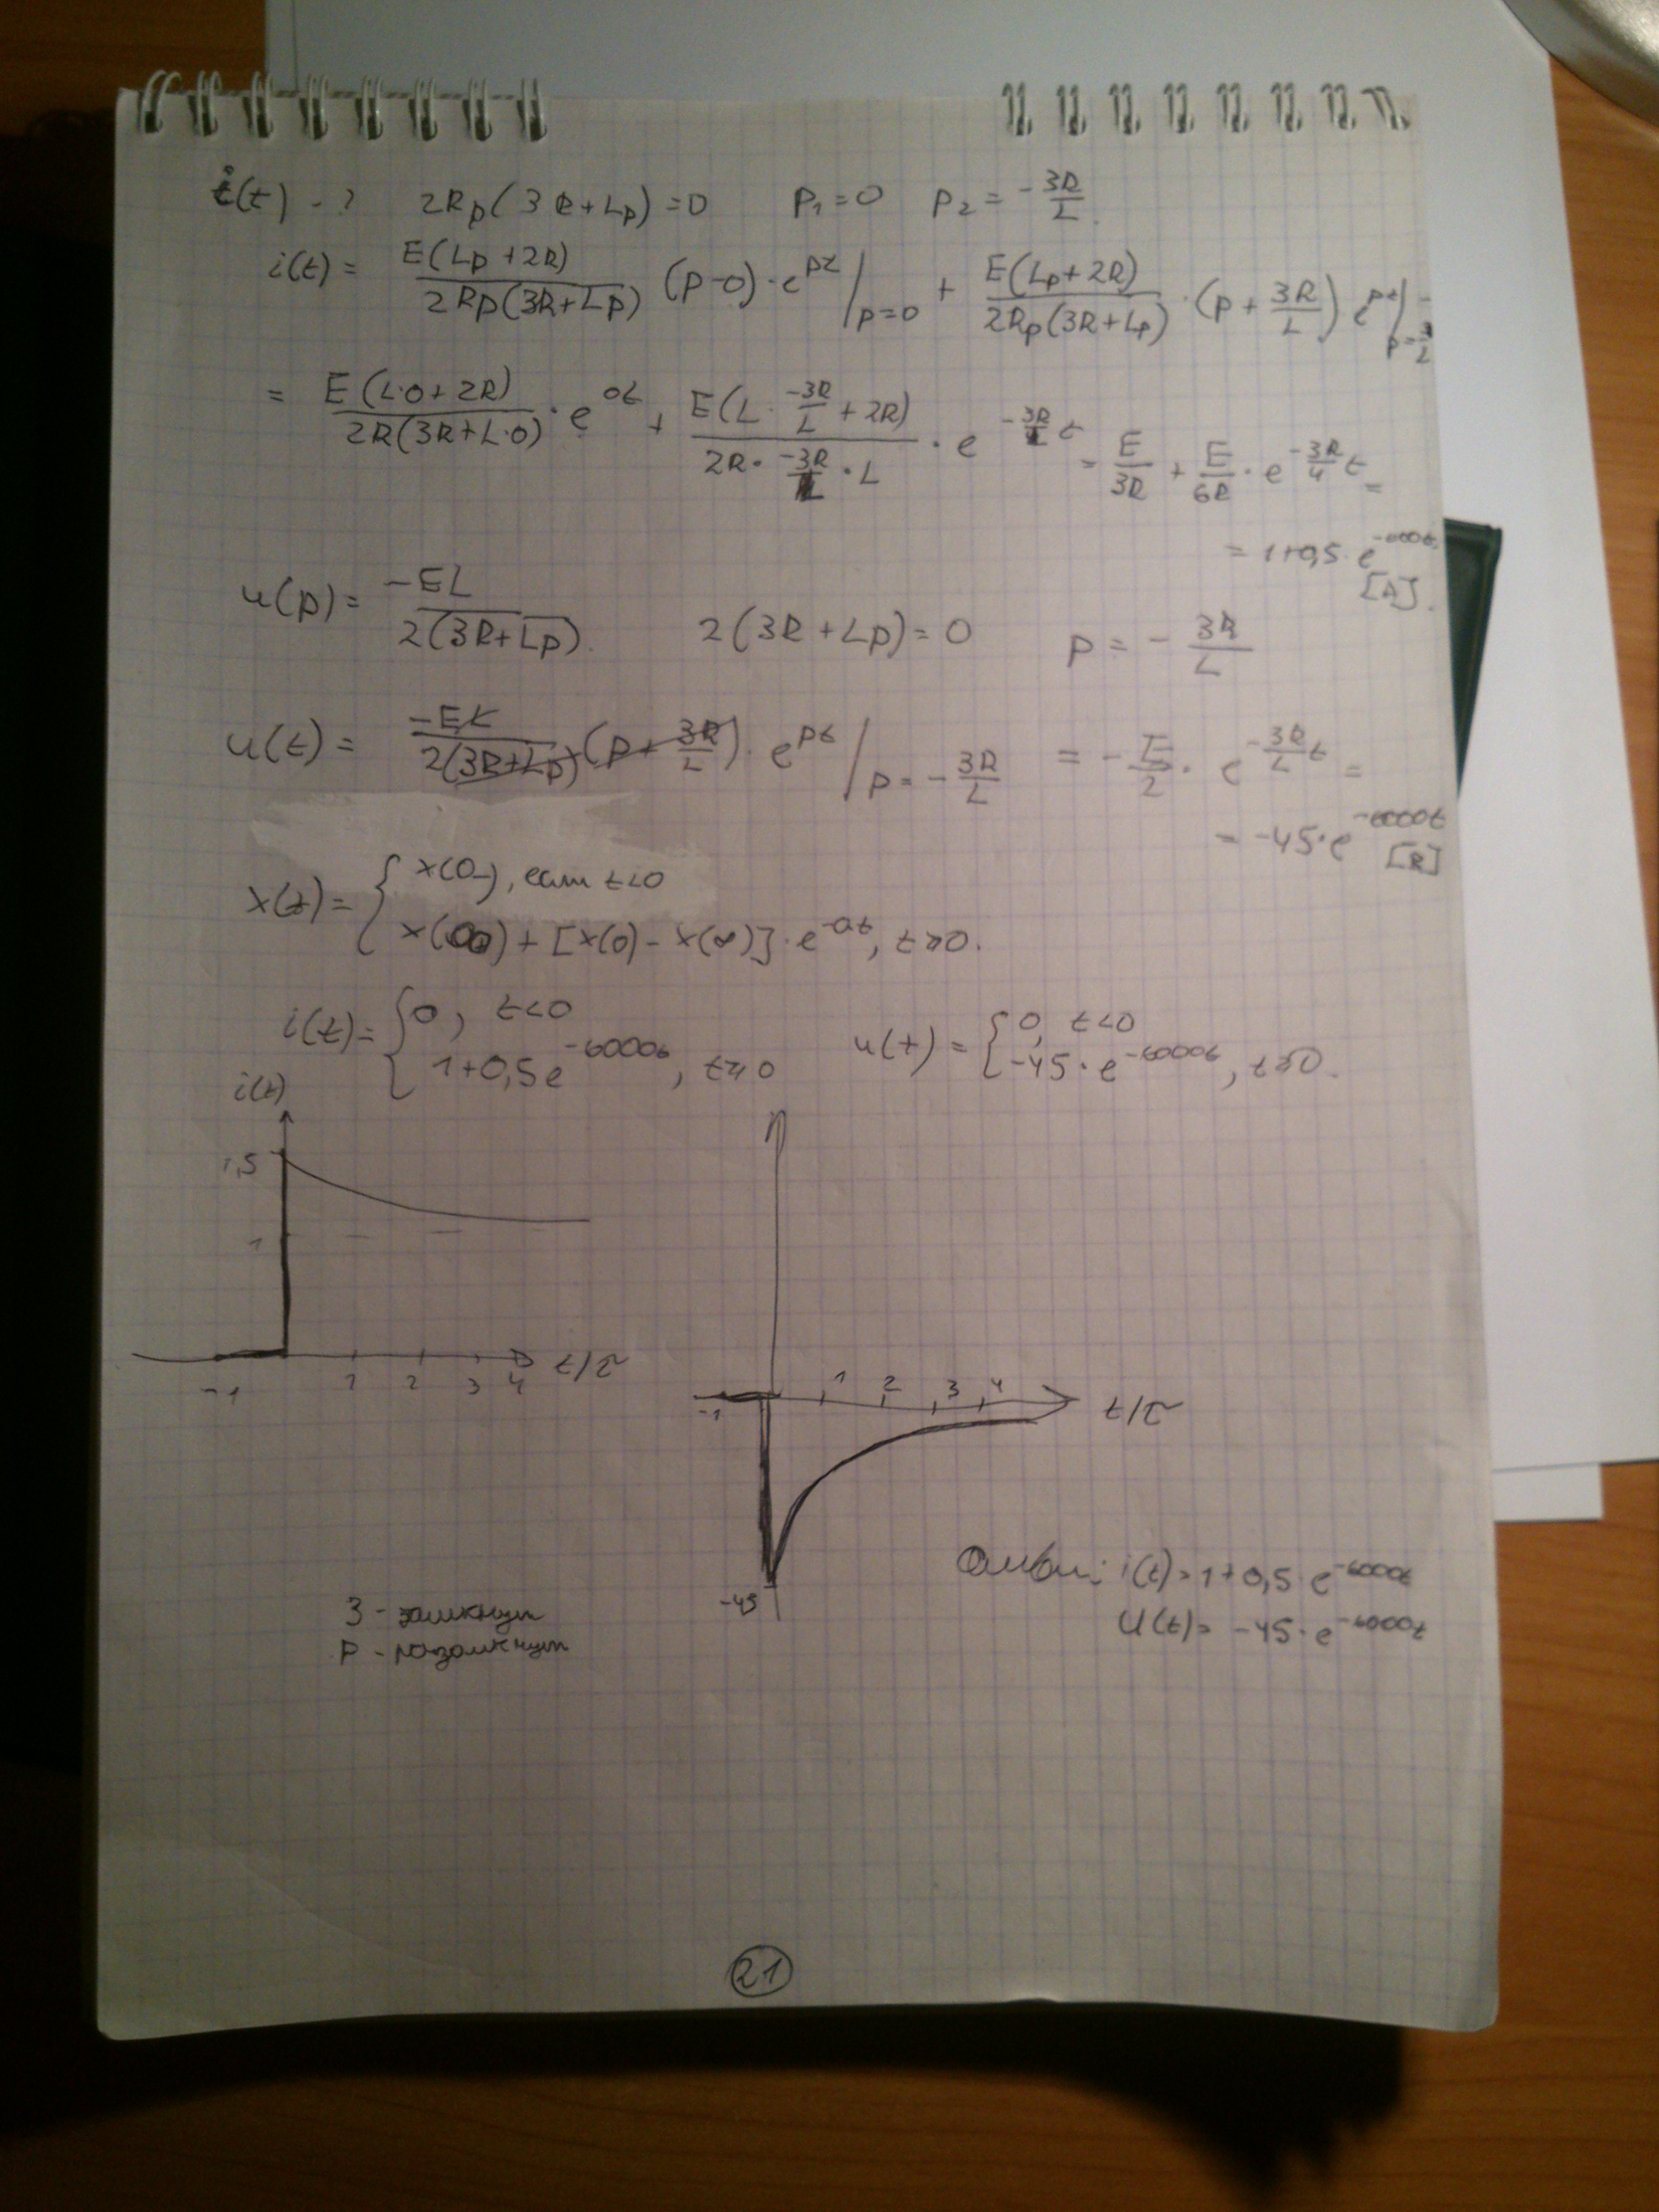 i(t) - ? 2Rp(3R+Lp)=0 p₁=0 p₂= -3R/L
i(t)= E(Lp+2R)/2Rp(3R+Lp) (p-0)·e^pt |p=0 + E(Lp+2R)/2Rp(3R+Lp) · (p+3R/L) e^pt |
= E(L·0+2R)/2R(3R+L·0) · e^0t + E(L·-3R/L+2R)/2R·-3R/L·L · e^-3R/L t = E/3R + E/6R · e^-3R/4 t =
= 1+0,5·e
[A].
u(p)= -EL/2(3R+Lp). 2(3R+Lp)=0 p = -3R/L
u(t)= -EL/2(3R+Lp) (p+3R/L)· e^pt |p=-3R/L = -E/2 · e^-3R/L t =
= -45·e^-60000t
[B]
x(t)= { x(0-), если t<0
x(∞)+[x(0)-x(∞)]·e^-at, t≥0.
i(t)= { 0, t<0
1+0,5e^-60000t, t≥0
u(t)= { 0, t<0
-45·e^-60000t, t≥0.
i(t)
1,5
1
-1 1 2 3 4 t/τ
-1 1 2 3 4 t/τ
-45
Ответ: i(t)=1+0,5·e^-60000t
U(t)= -45·e^-60000t
З - замкнут
Р - разомкнут
21